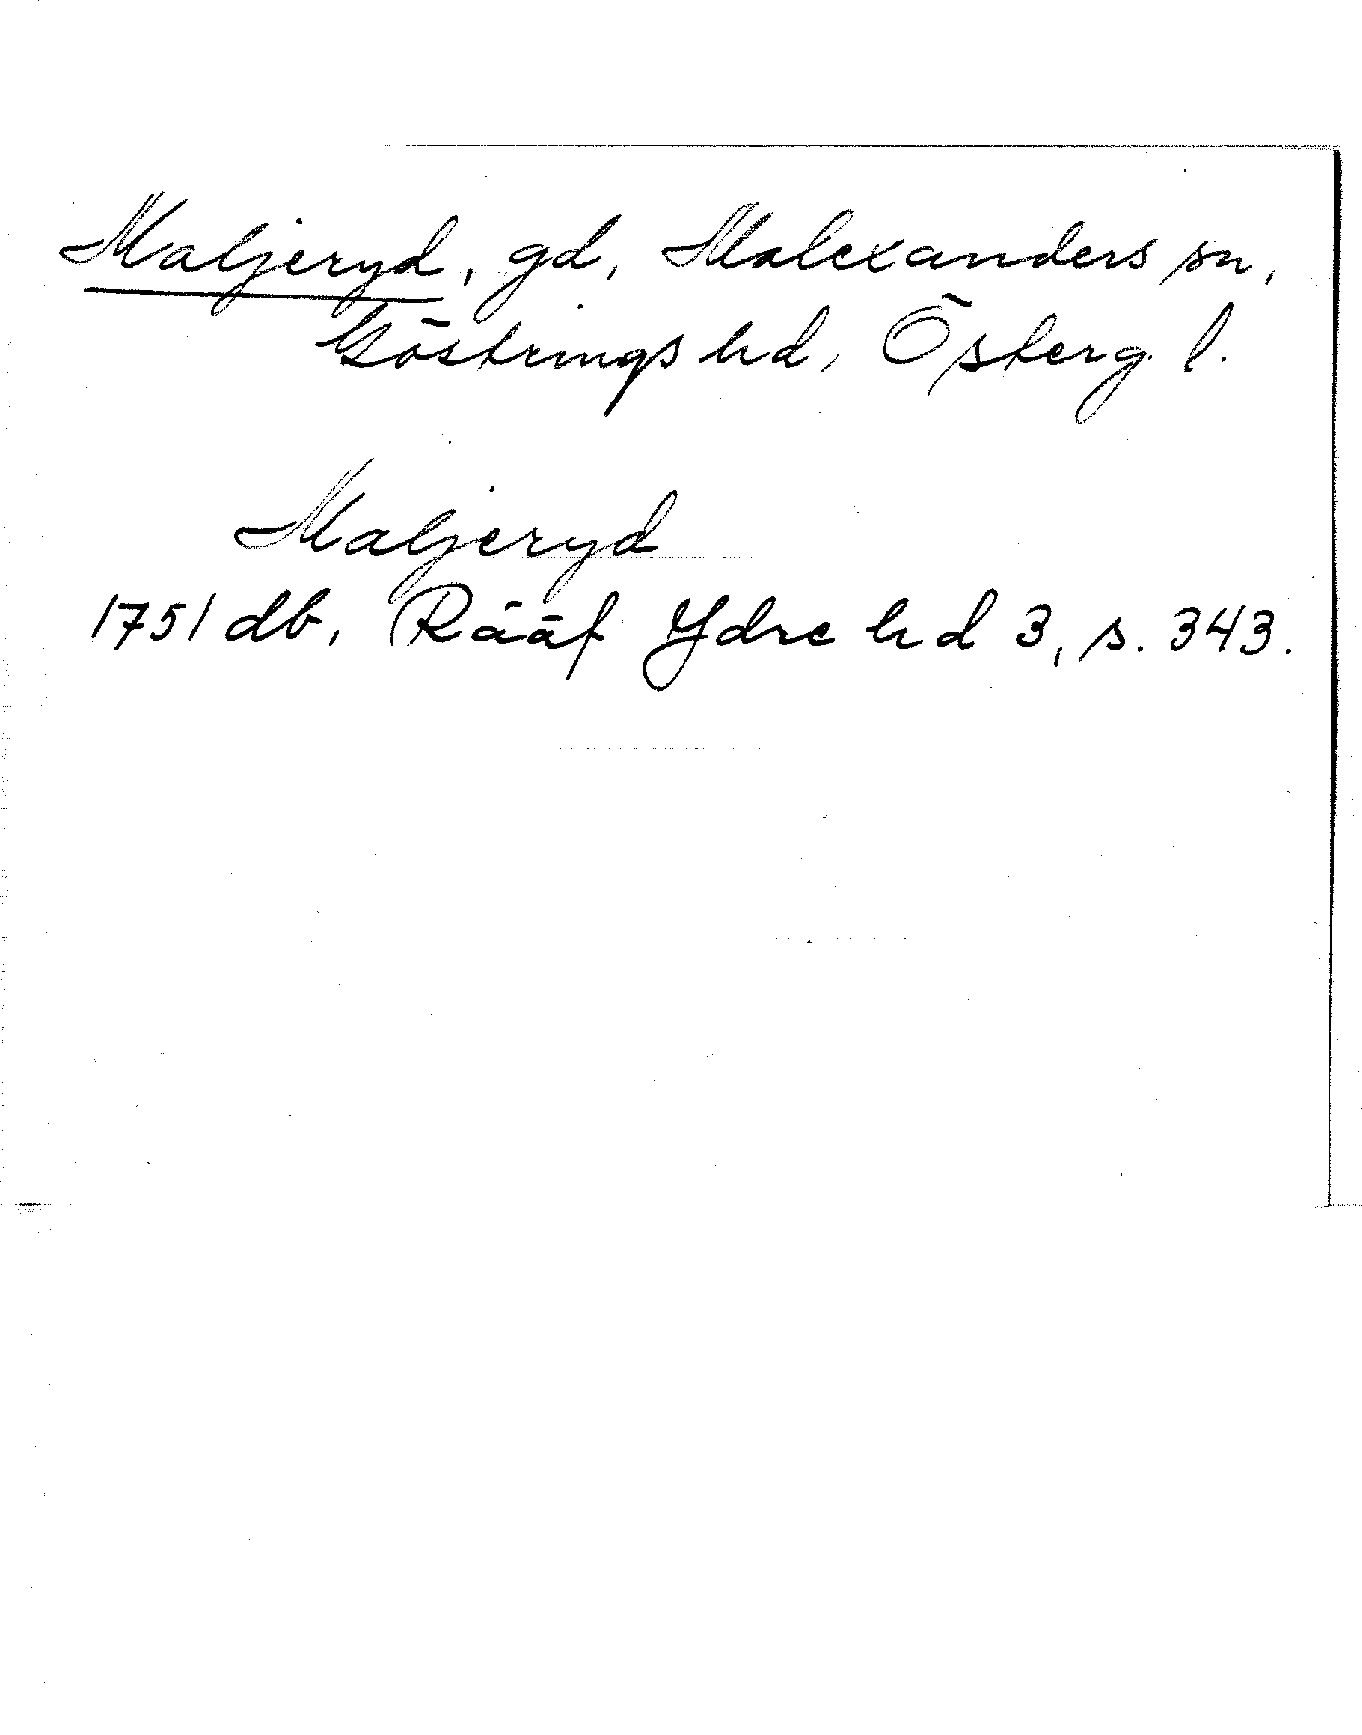 Maljeryd, gd, Malexanders sn,
Göstrings hd, Österg. l.
Maljeryd
1751 db, Rääf Ydre hd 3, s. 343.